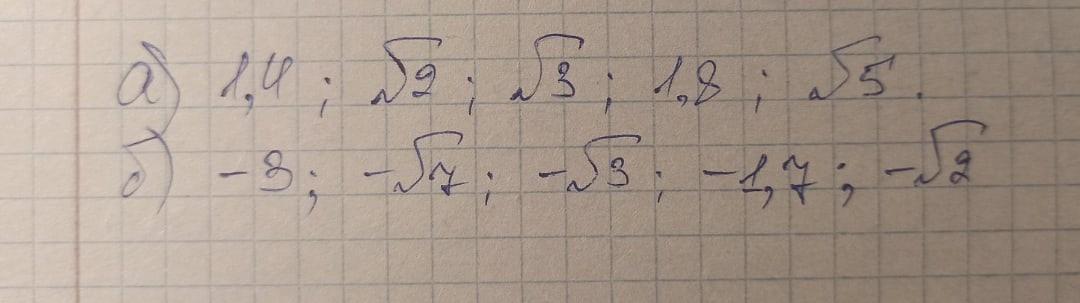 а) 1,4 ; √2 ; √3 ; 1,8 ; √5 .
б) -3 ; -√7 ; -√3 ; -1,7 ; -√2